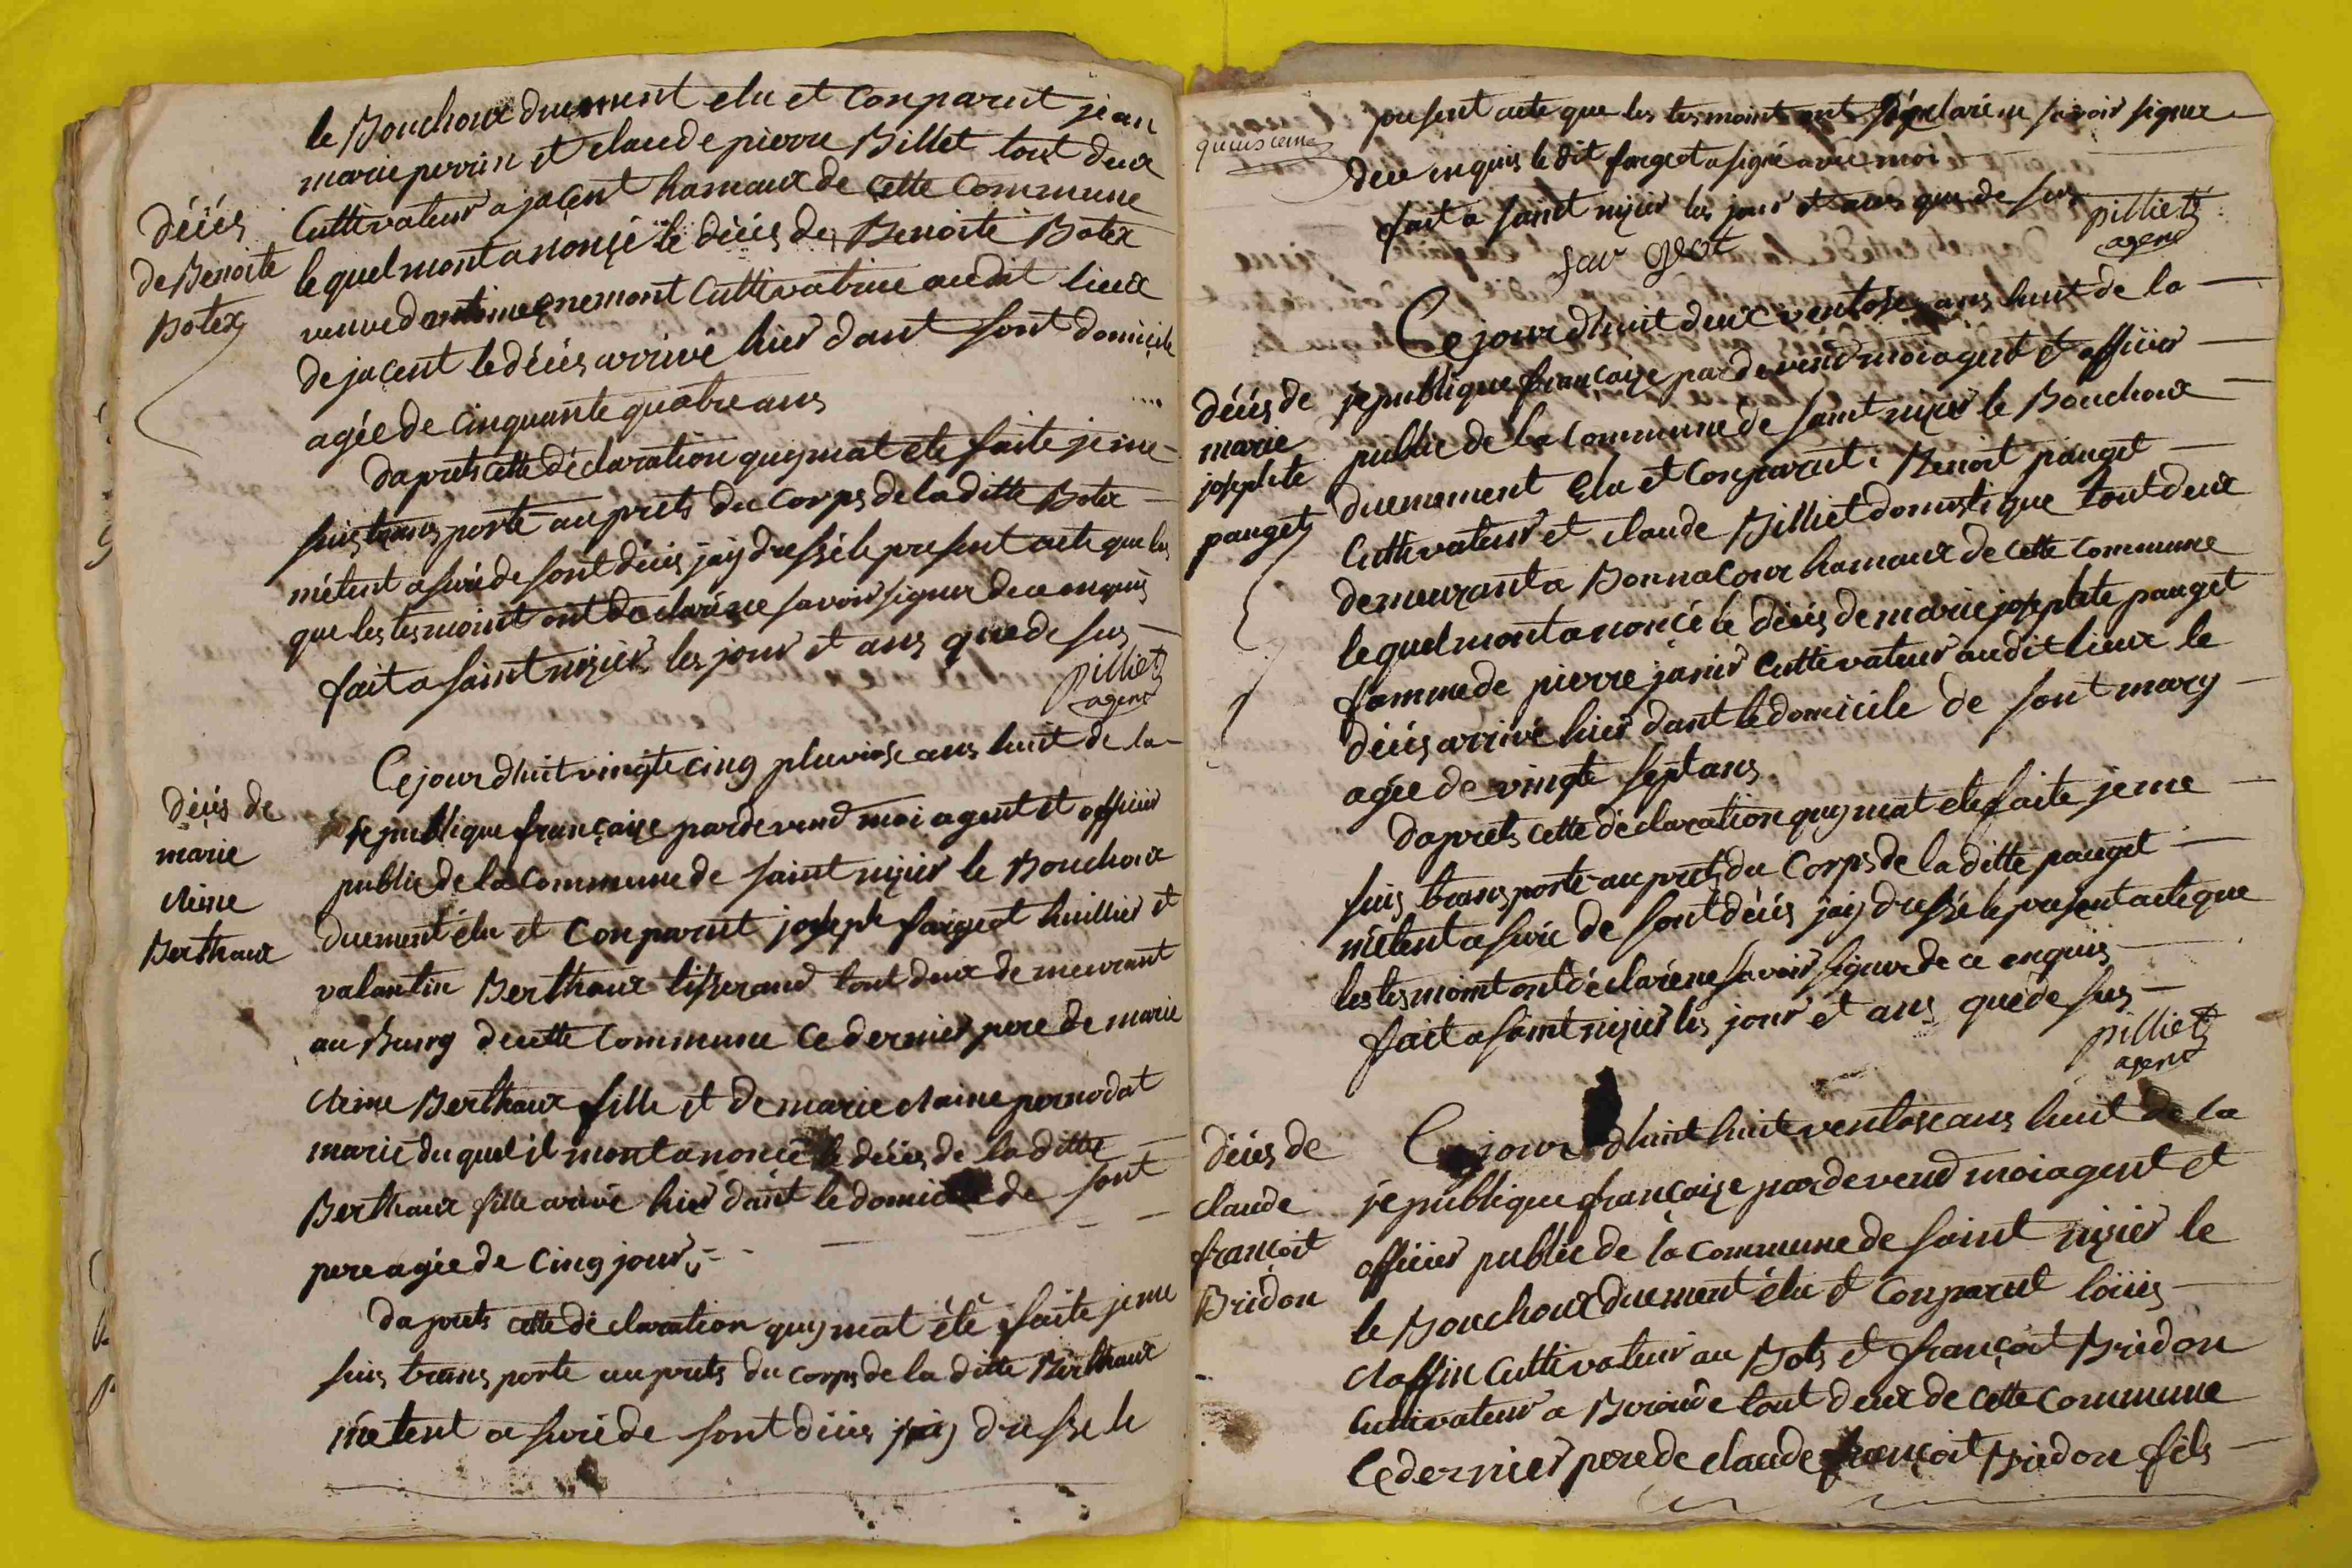 le Bouchoux duement elu et Conparut jean
marie perrin et claude pierre Billet tout deux
Cuttivateur a jacent hamaux de cette Commune
décés
de Benoite
Botex
le quel mont anonçé le décés de Benoite Botex
veuve dantoine Cuttivatrice audit lieux
de jacent le décés arrivé hier dant sont domicile
agée de cinquante quatre ans
daprets cette déclaration quymat ete faite je me
suis trans porté au prets du Corps de la ditte Botex
métent asuré de sont décés jay dressé le present acte que les
que les tesmoint ont déclaré ne savoir signer de ce enquis
fait a saint nizier les jour et ans que de sus
pilliet
agent
Ce jour dhuit vingte cinq pluviose ans huit de la
décés de
marie
cleine
Berthaux
republique françaize pardevend moi agent et officier
public de la Commune de saint nizier le Bouchoux
duement élu et Conparut joseph fargeot huillier et
valantin Berthaux tisserand tout deux demeurant
au Burg de cette Commune Ce dernier pere de marie
cleine Berthaux fille et de marie claine pernodat
marie du quel il mont anoncé le décés de la ditte
Berthaux fille arivé hier dant le domicile de sont
pere agée de Cinq jour
daprets cette déclaration quymat été faite je me
suis trans porte au prets du corps de la ditte Berthaux
métent a suré de sont décés jay dressé le
present acte que les tesmoint ont déclaré ne savoir signer
dece enquis le dit fargeot a signé avec moi
fait a saint nizier les jour et ans que de sus
pilliet
agent
far geot
Ce jour dhuit deux ventose ans huit de la
décés de
marie
josephte
pauget
republique françaize pardevend moi agent et officier
public de la Commune de saint nizier le Bouchoux
duemement Elu et Conparut Benoit pauget
Cuttivateur et claude Billiet domestique tout deux
demeurant a Bonnacour hamaux de cette commune
le quel mont anoncé le décés de marie josephte pauget
famme de pierre janir Cuttivateur audit lieux le
décés arrivé hier dant le domicile de sont mary
agée de vingte sept ans
daprets cette déclaration quymat ete faite je me
suis trans porte au prets du Corps de la ditte pauget
métent asuré de sont décés jay dressé le present acte que
les tesmoint ont déclaré ne savoir signer de ce enquis
fait a saint nizier les jour et ans que de sus
pilliet
agent
Ce jour dhuit huit ventose ans huit de la
décés de
claude
françoit
Bridon
republique françaize pardevend moi agent et
officier public de la commune de saint nizier le
le Bouchoux duement élu et Conparut loüis
claffin Cuttivateur au Bots et françoit Bridon
Cuttivateur a tout deux de cette Commune
Ce dernier pere de claude françoit Bridon fils